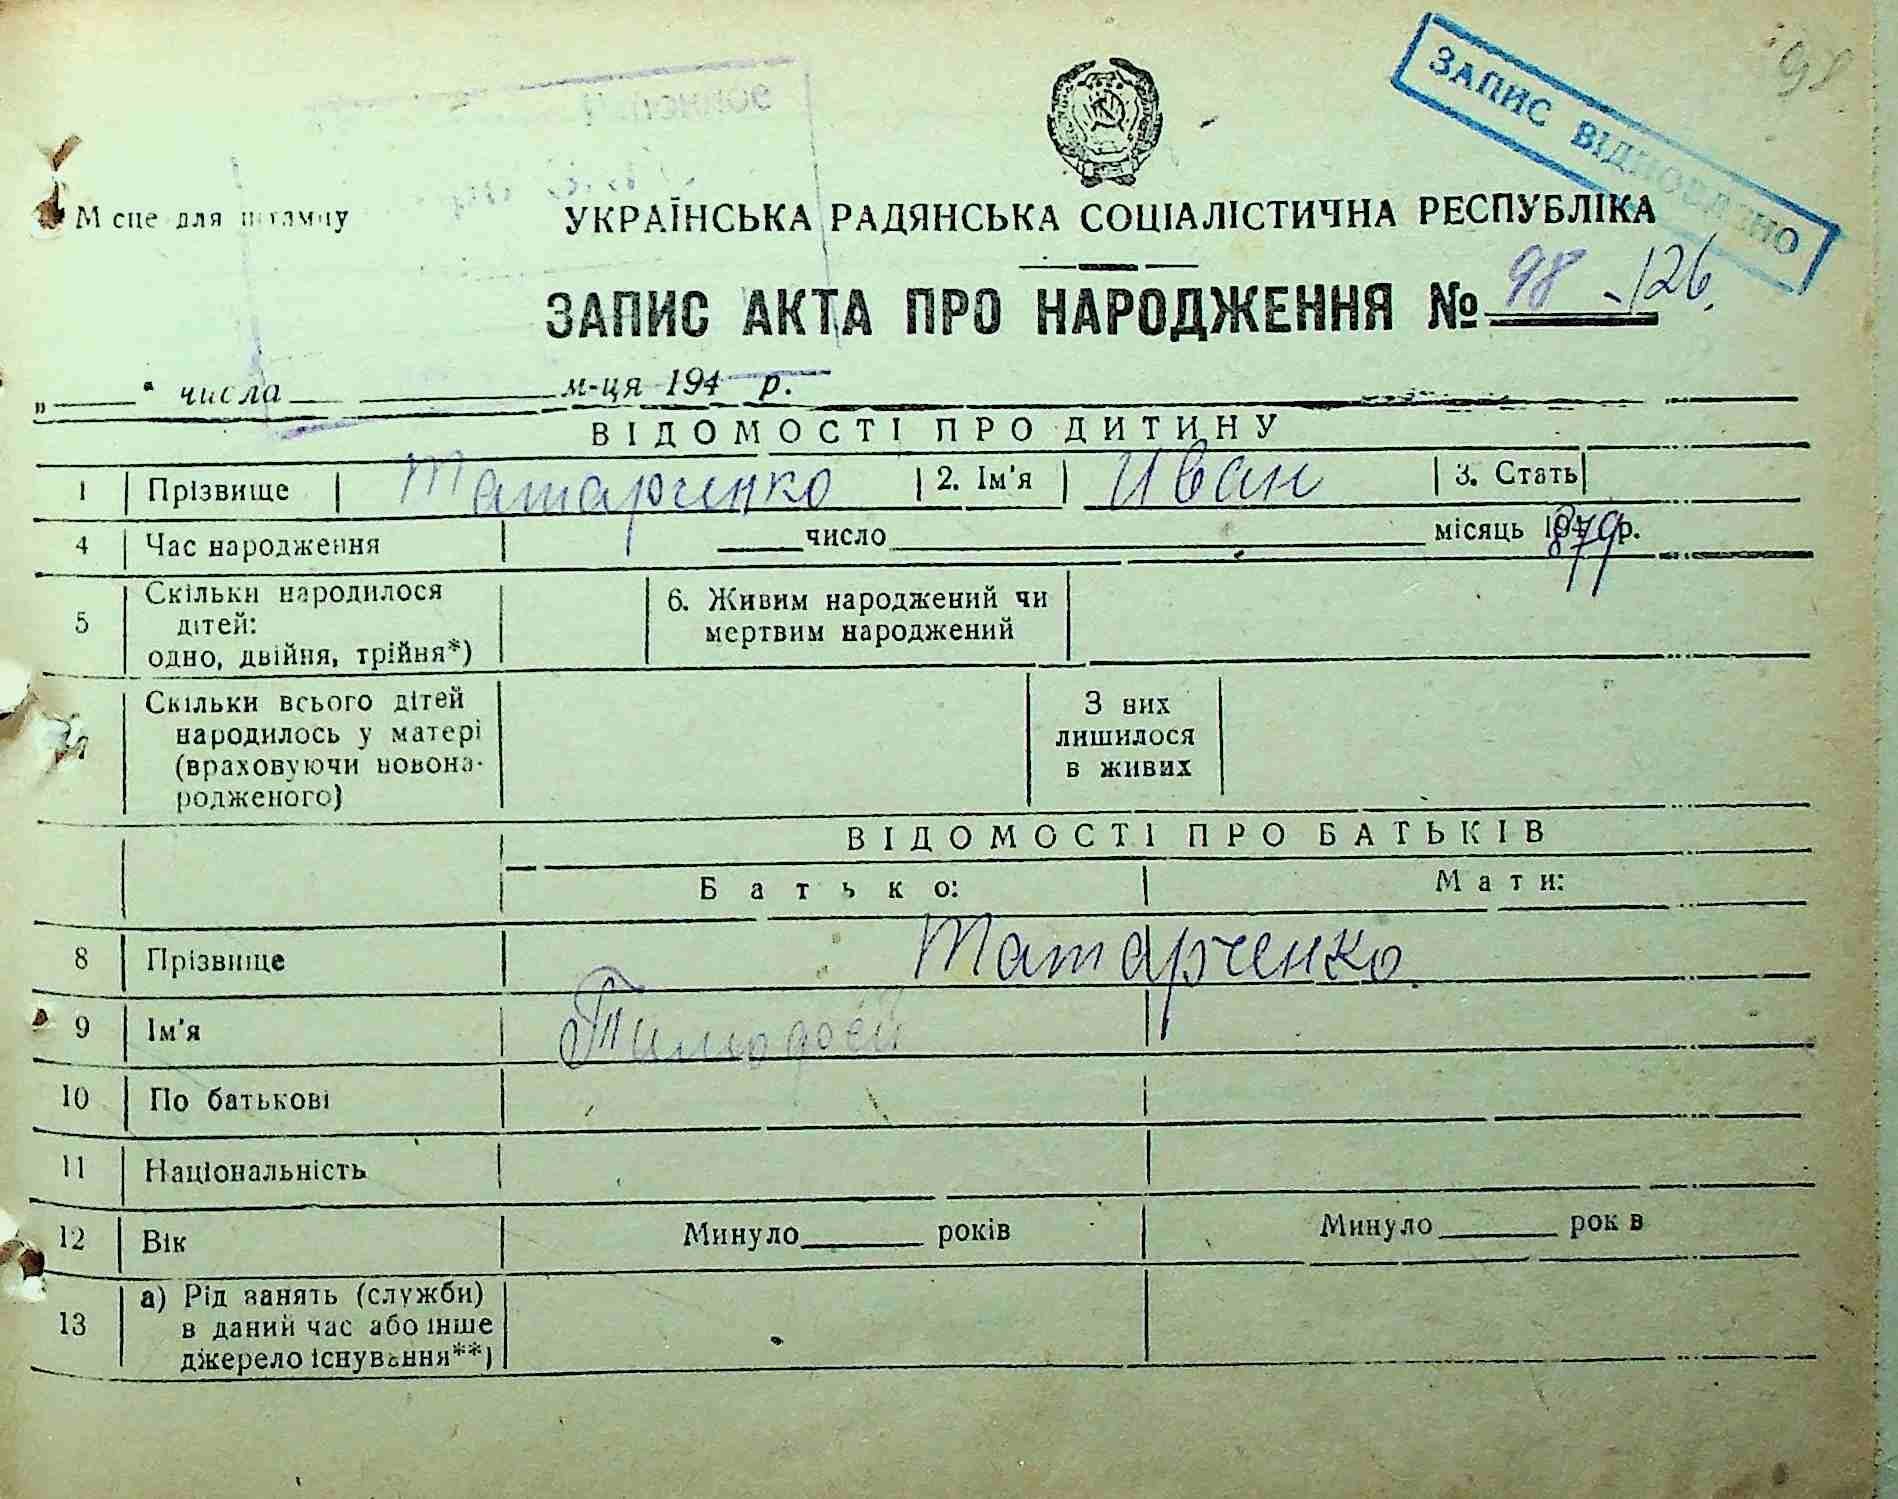 98
ЗАПИС ВІДНОВЛЕНО
Місце для штампу
УКРАЇНСЬКА РАДЯНСЬКА СОЦІАЛІСТИЧНА РЕСПУБЛІКА
ЗАПИС АКТА ПРО НАРОДЖЕННЯ № 98 - 126.
„ " числа м-ця 194 р.
ВІДОМОСТІ ПРО ДИТИНУ
1 Прізвище Татарченко 2. Ім'я Иван 3. Стать
4 Час народження число місяць 1879 р.
5 Скільки народилося дітей: одно, двійня, трійня*) 6. Живим народжений чи мертвим народжений
7 Скільки всього дітей народилось у матері (враховуючи новонародженого) З них лишилося в живих
ВІДОМОСТІ ПРО БАТЬКІВ
Батько: Мати:
8 Прізвище Татарченко
9 Ім'я Тимофей
10 По батькові
11 Національність
12 Вік Минуло років Минуло років
13 а) Рід занять (служби) в даний час або інше джерело існування**)